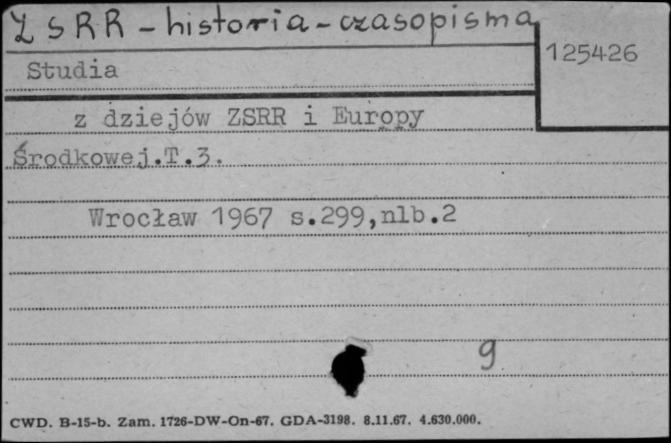 ZSRR - historia - czasopisma
125426
Studia
z dziejów ZSRR i Europy
Środkowej.T.3.
Wrocław 1967 s.299,nlb.2
9
CWD. B-15-b. Zam. 1726-DW-On-67. GDA-3198. 8.11.67. 4.630.000.